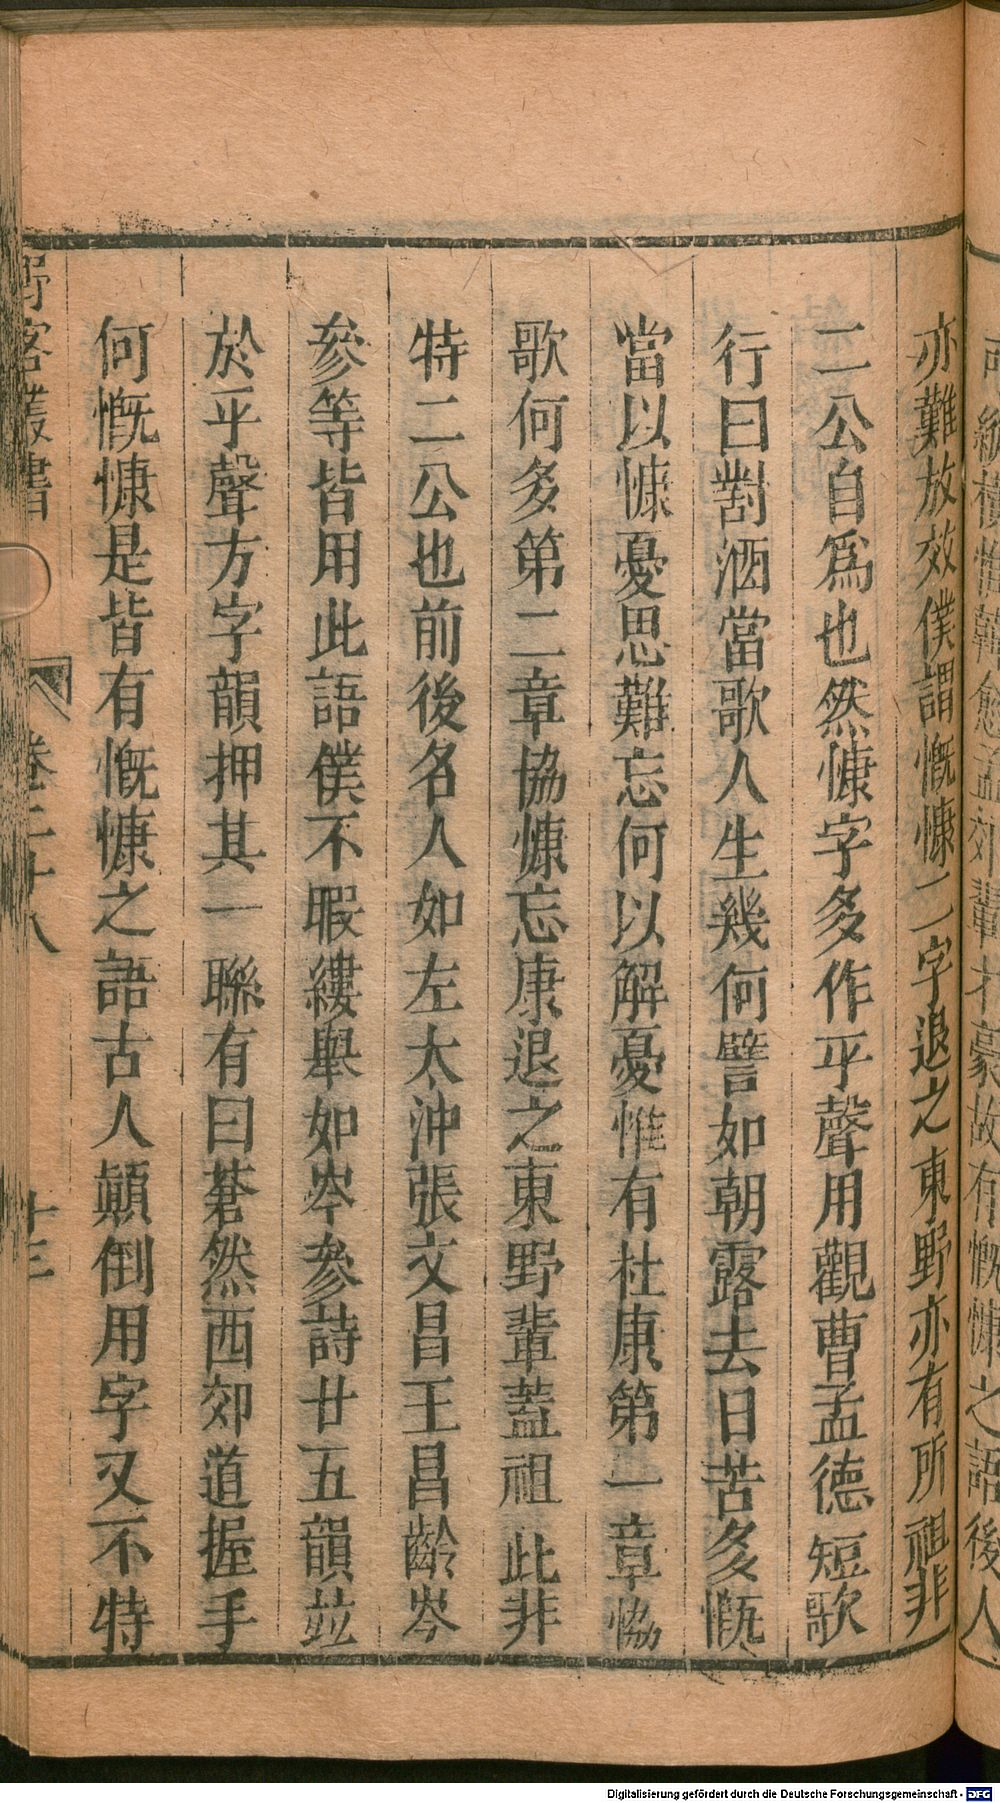 亦難放效僕謂慨慷二字退之東野亦有所祖非
二公自爲也然慷字多作平聲用觀曹孟德短歌
行曰對酒當歌人生幾何譬如朝露去日苦多慨
當以慷憂思難忘何以解憂惟有杜康第一章協
歌何多第二章協慷忘康退之東野輩蓋祖此非
特二公也前後名人如左太沖張文昌王昌齡岑
參等皆用此語僕不暇縷舉如岑參詩廿五韻並
於平聲方字韻押其一聯有曰蒼然西郊道握手
何慨慷是皆有慨慷之語古人顛倒用字又不特
野客叢書 卷二十八 十三
Digitalisierung gefördert durch die Deutsche Forschungsgemeinschaft - DFG